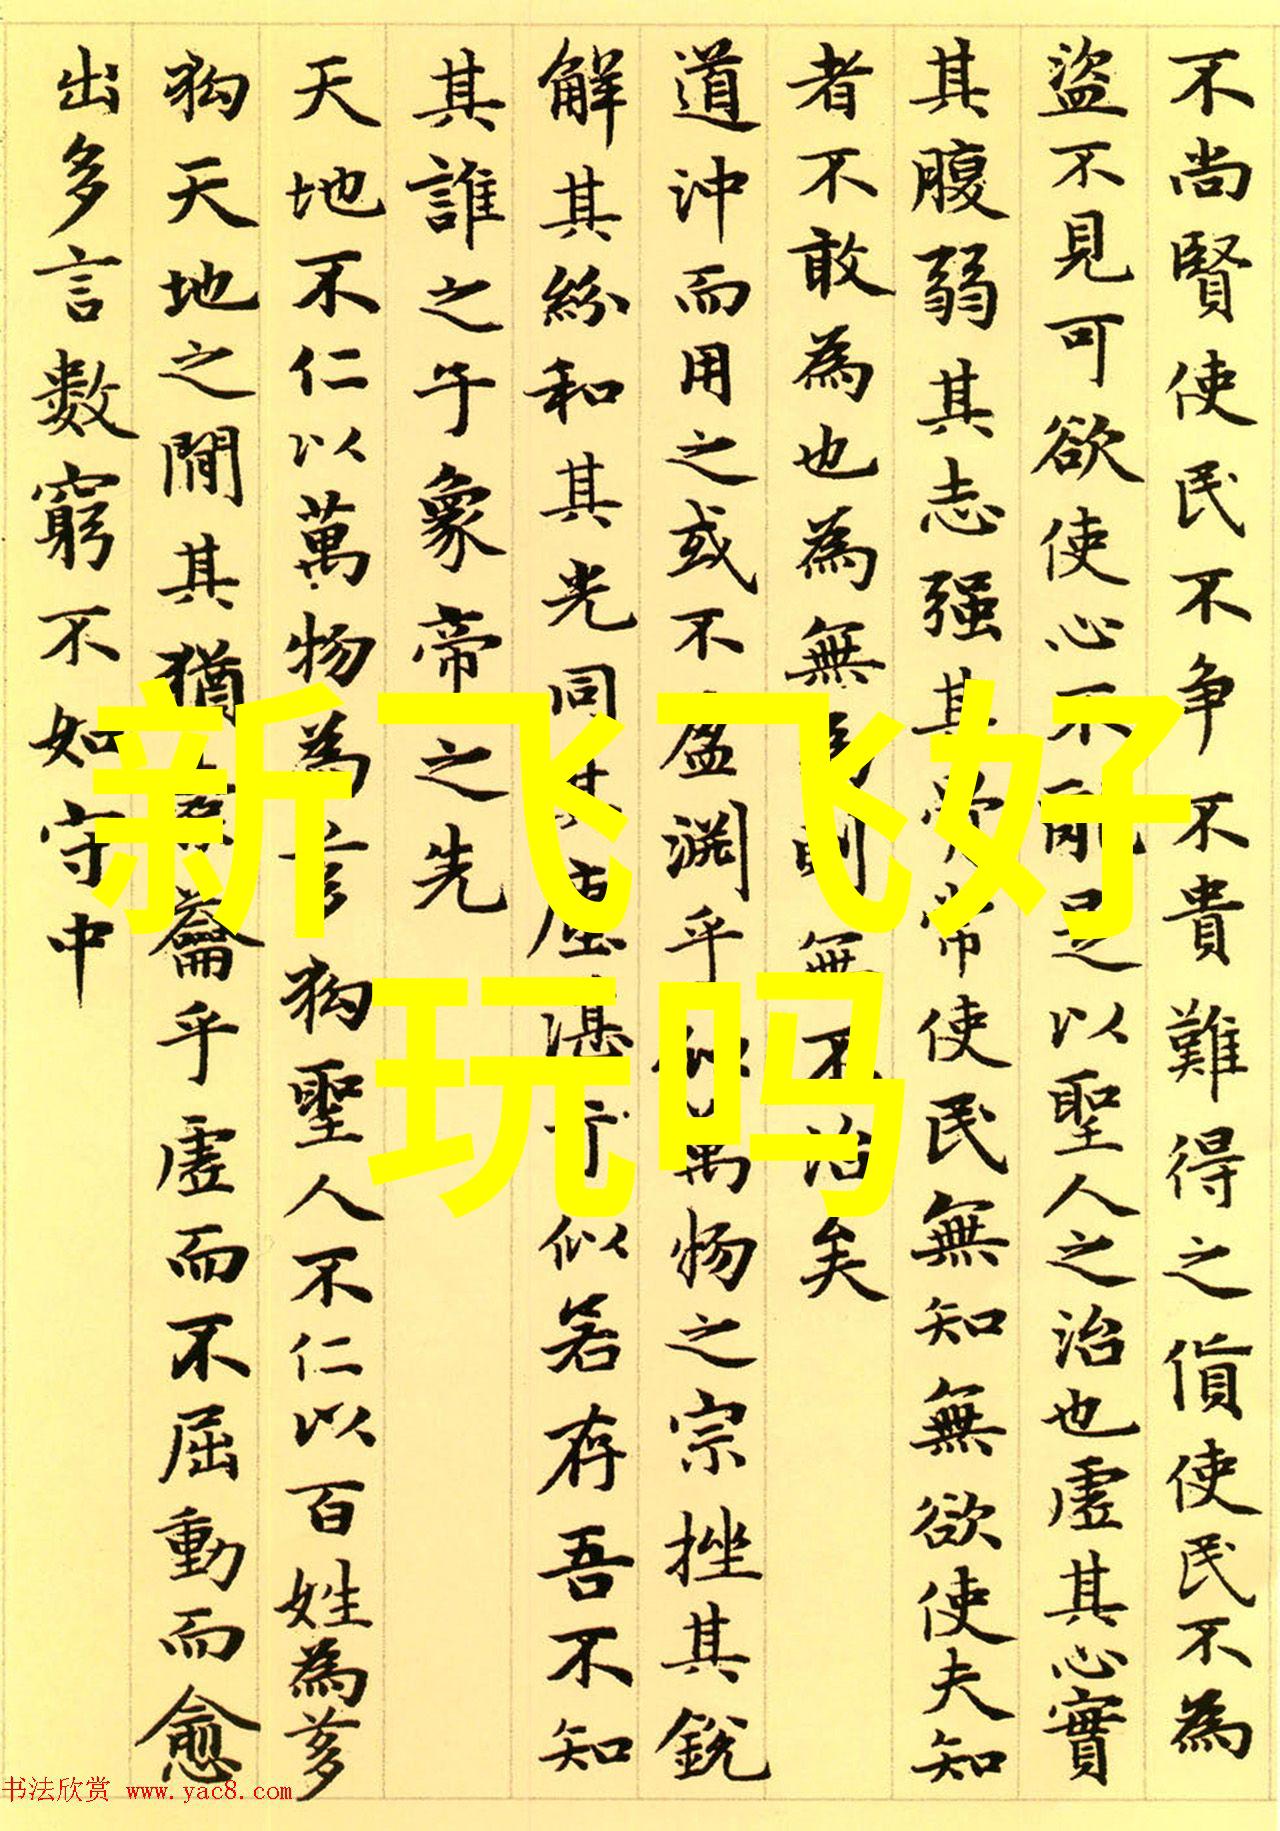 不尚賢使民不争不貴難得之貨使民不為
盜不見可欲使心不亂是以聖人之治也虛其心實
其腹弱其志强其骨常使民無知無欲使夫知
者不敢為也為無為則無不治矣
道沖而用之或不盈淵乎似萬物之宗挫其銳
解其紛和其光同其塵湛乎似若存吾不知
其誰之子象帝之先
天地不仁以萬物為芻狗聖人不仁以百姓為芻
狗天地之間其猶橐籥乎虛而不屈動而愈
出多言數窮不如守中
新飞飞好
玩吗
书法欣赏 www.yac8.com